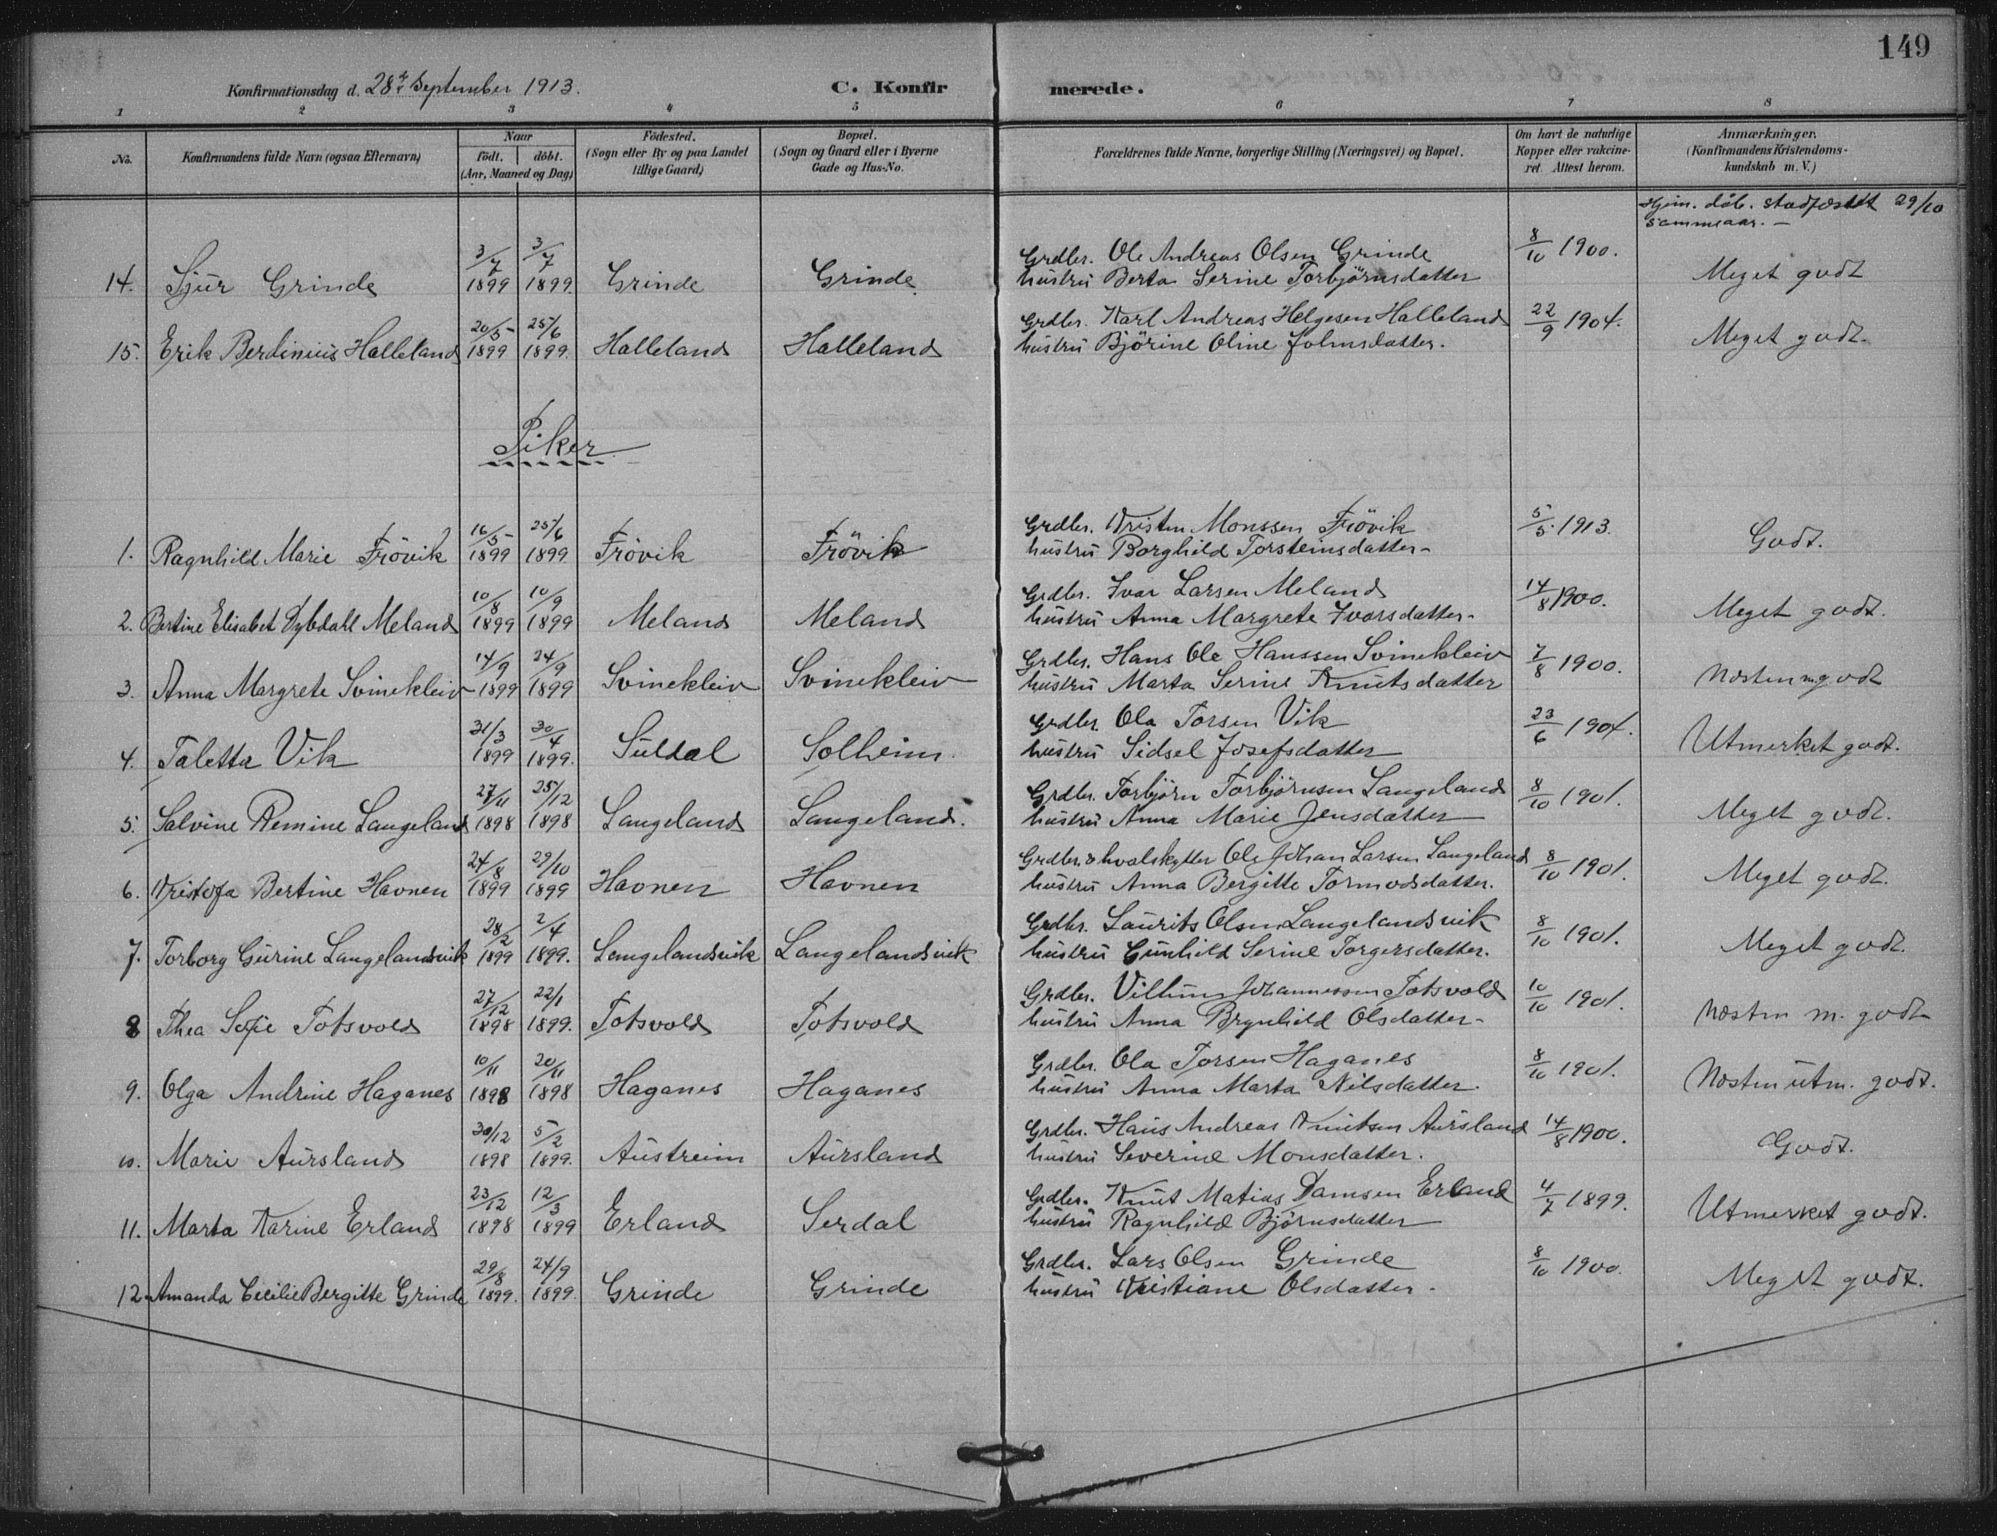 149
Konfirmationsdag d. 28de September 1913.
C. Konfirmerede.
1 2 3 4 5 6 7 8
No.
Konfirmandens fulde Navn (ogsaa Efternavn)
Naar
födt. döbt.
(Anr, Maaned og Dag)
Födested.
(Sogn eller By og paa Landet
tillige Gaard)
Bopæl.
(Sogn og Gaard eller i Byerne
Gade og Hus-No.
Forældrenes fulde Navne, borgerlige Stilling (Næringsvei) og Bopæl.
Om havt de naturlige
Kopper eller vakcine-
ret. Attest herom.
Anmærkninger.
(Konfirmandens Kristendoms-
kundskab m. V.)
Hjem. döb. stadfæstet 29/10
sammeaar. –
14. Sjur Grinde 3/7 1899 3/7 1899. Grinde Grinde. Grdbr. Ole Andreas Olsen Grinde 8/10 1900. Meget godt
hustru Berta Serine Torbjörnsdatter
15. Erik Berdinius Halleland 20/5 1899 25/6 1899. Halleland Halleland Grdbr. Karl Andreas Helgesen Halleland 22/9 1904. Meget godt.
hustru Björine Oline Johnsdatter.
Piker
1. Ragnhild Marie Frövik 16/5 1899 25/6 1899 Frövik Frövik Grdbr. Kristen Monssen Frövik 5/5 1913. Godt.
hustru Borghild Torsteinsdatter
2. Bertine Elisabet Dybdall Meland 10/8 1899 10/9 1899 Meland Meland Grdbr. Ivar Larsen Meland 14/8 1900. Meget godt.
hustru Anna Margrete Ivarsdatter
3. Anna Margrete Svinekleiv 14/9 1899 24/9 1899 Svinekleiv Svinekleiv Grdbr. Hans Ole Hanssen Svinekleiv 7/8 1900. Næsten m. godt
hustru Marta Serine Knutsdatter
4. Taletta Vik 31/3 1899 30/4 1899. Suldal Solheim. Grdbr. Ola Torsen Vik 23/6 1904. Utmerket godt.
hustru Sidsel Josefsdatter
5. Salvine Remine Langeland 27/11 1898 25/12 1898 Langeland Langeland. Grdbr. Torbjörn Torbjörnsen Langeland 8/10 1901. Meget godt.
hustru Anna Marie Jensdatter
6. Kristofa Bertine Havnen 24/8 1899 29/10 1899 Havnen Havnen Grdbr. & hvalskytter Ole Johan Larsen Langeland 8/10 1901. Meget godt.
hustru Anna Bergitte Tormodsdatter.
7. Torborg Gurine Langelandsvik 28/2 1899 2/4 1899. Langelandsvik Langelandsvik Grdbr. Laurits Olsen Langelandsvik 8/10 1901. Meget godt.
hustru Gunhild Serine Torgersdatter.
8 Thea Sofie Totsvold 27/12 1898 22/1 1899. Totsvold Totsvold Grdbr. Villum Johannessen Totsvold 10/10 1901. Næsten m. godt
hustru Anna Brynhild Olsdatter
9. Olga Andrine Haganes 10/11 1898 20/11 1898 Haganes Haganes Grdbr. Ola Torsen Haganes 8/10 1901. Næsten utm. godt.
hustru Anna Marta Nilsdatter.
10. Marie Aursland 30/12 1898 5/2 1899. Austreim Aursland Grdbr. Hans Andreas Knutsen Aursland 14/8 1900. Godt.
hustru Severine Monsdatter.
11. Marta Karine Erland 23/12 1898 12/3 1899 Erland Serdal Grdbr. Knut Matias Damsen Erland 4/7 1899. Utmerket godt.
hustru Ragnhild Björnsdatter
12. Amanda Cecilie Bergitte Grinde 29/8 1899. 24/9 1899. Grinde Grinde Grdbr. Lars Olsen Grinde 8/10 1900. Meget godt.
hustru Kristiane Olsdatter.